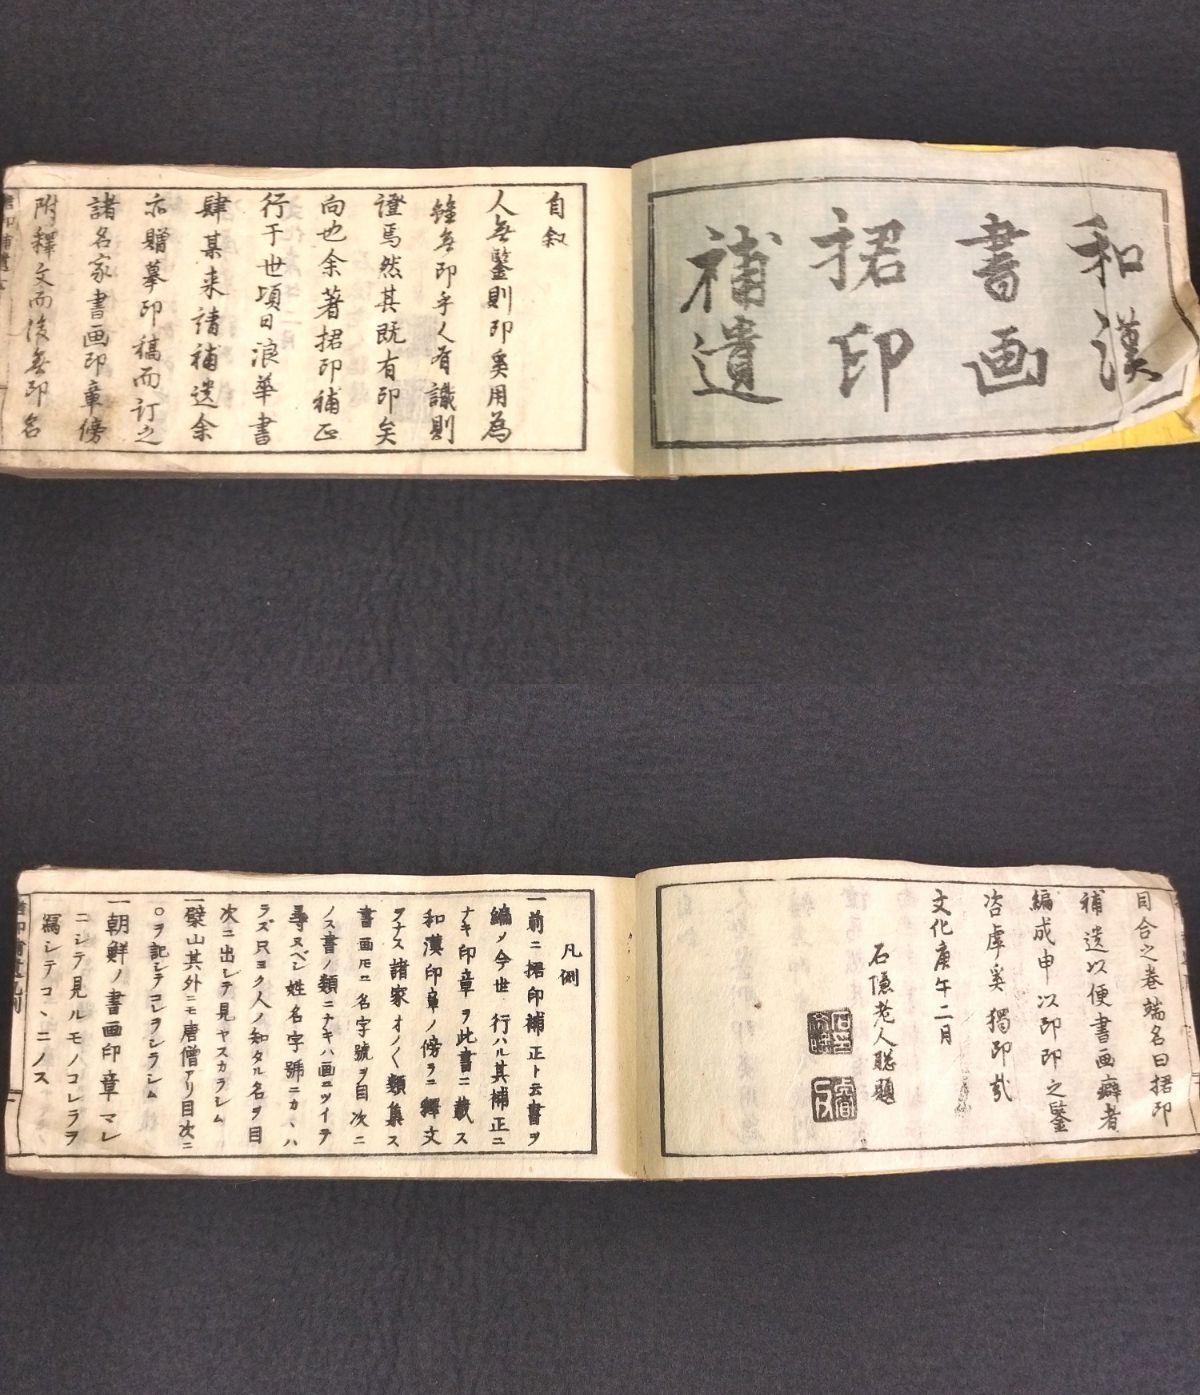 和漢
書画
捃印
補遺
自叙
人無鑒則印奚用為
雖無印乎人有識則
證焉然其既有印矣
向也余著捃印補正
行于世頃日浪華書
肆某来請補遺余
亦贈摹印稿而訂之
諸名家書画印章傍
附釋文而後無印名
目合之巻端名曰捃印
補遺以便書画癖者
編成申以印印之鑒
咨虖奚獨印哉
文化庚午二月
石隠老人聡題
凡例
一前ニ捃印補正ト云書ヲ
編メ今世ニ行ハル其補正ニ
ナキ印章ヲ此書ニ載ス
和漢印章ノ傍ラニ釋文
ヲナス諸家オノ〱類集ス
書画𪜈ニ名字號ヲ目次ニ
ノス書ノ類ニナキハ画ニツイテ
尋ヌベシ姓名字號ニカヽハ
ラズ只ヨク人ノ知タル名ヲ目
次ニ出シテ見ヤスカラシム
一檗山其外ニモ唐僧アリ目次ニ
○ヲ記シテコレヲシラシム
一朝鮮ノ書画印章マレ
ニシテ見ルモノコレラヲ
寫シテコヽニノス